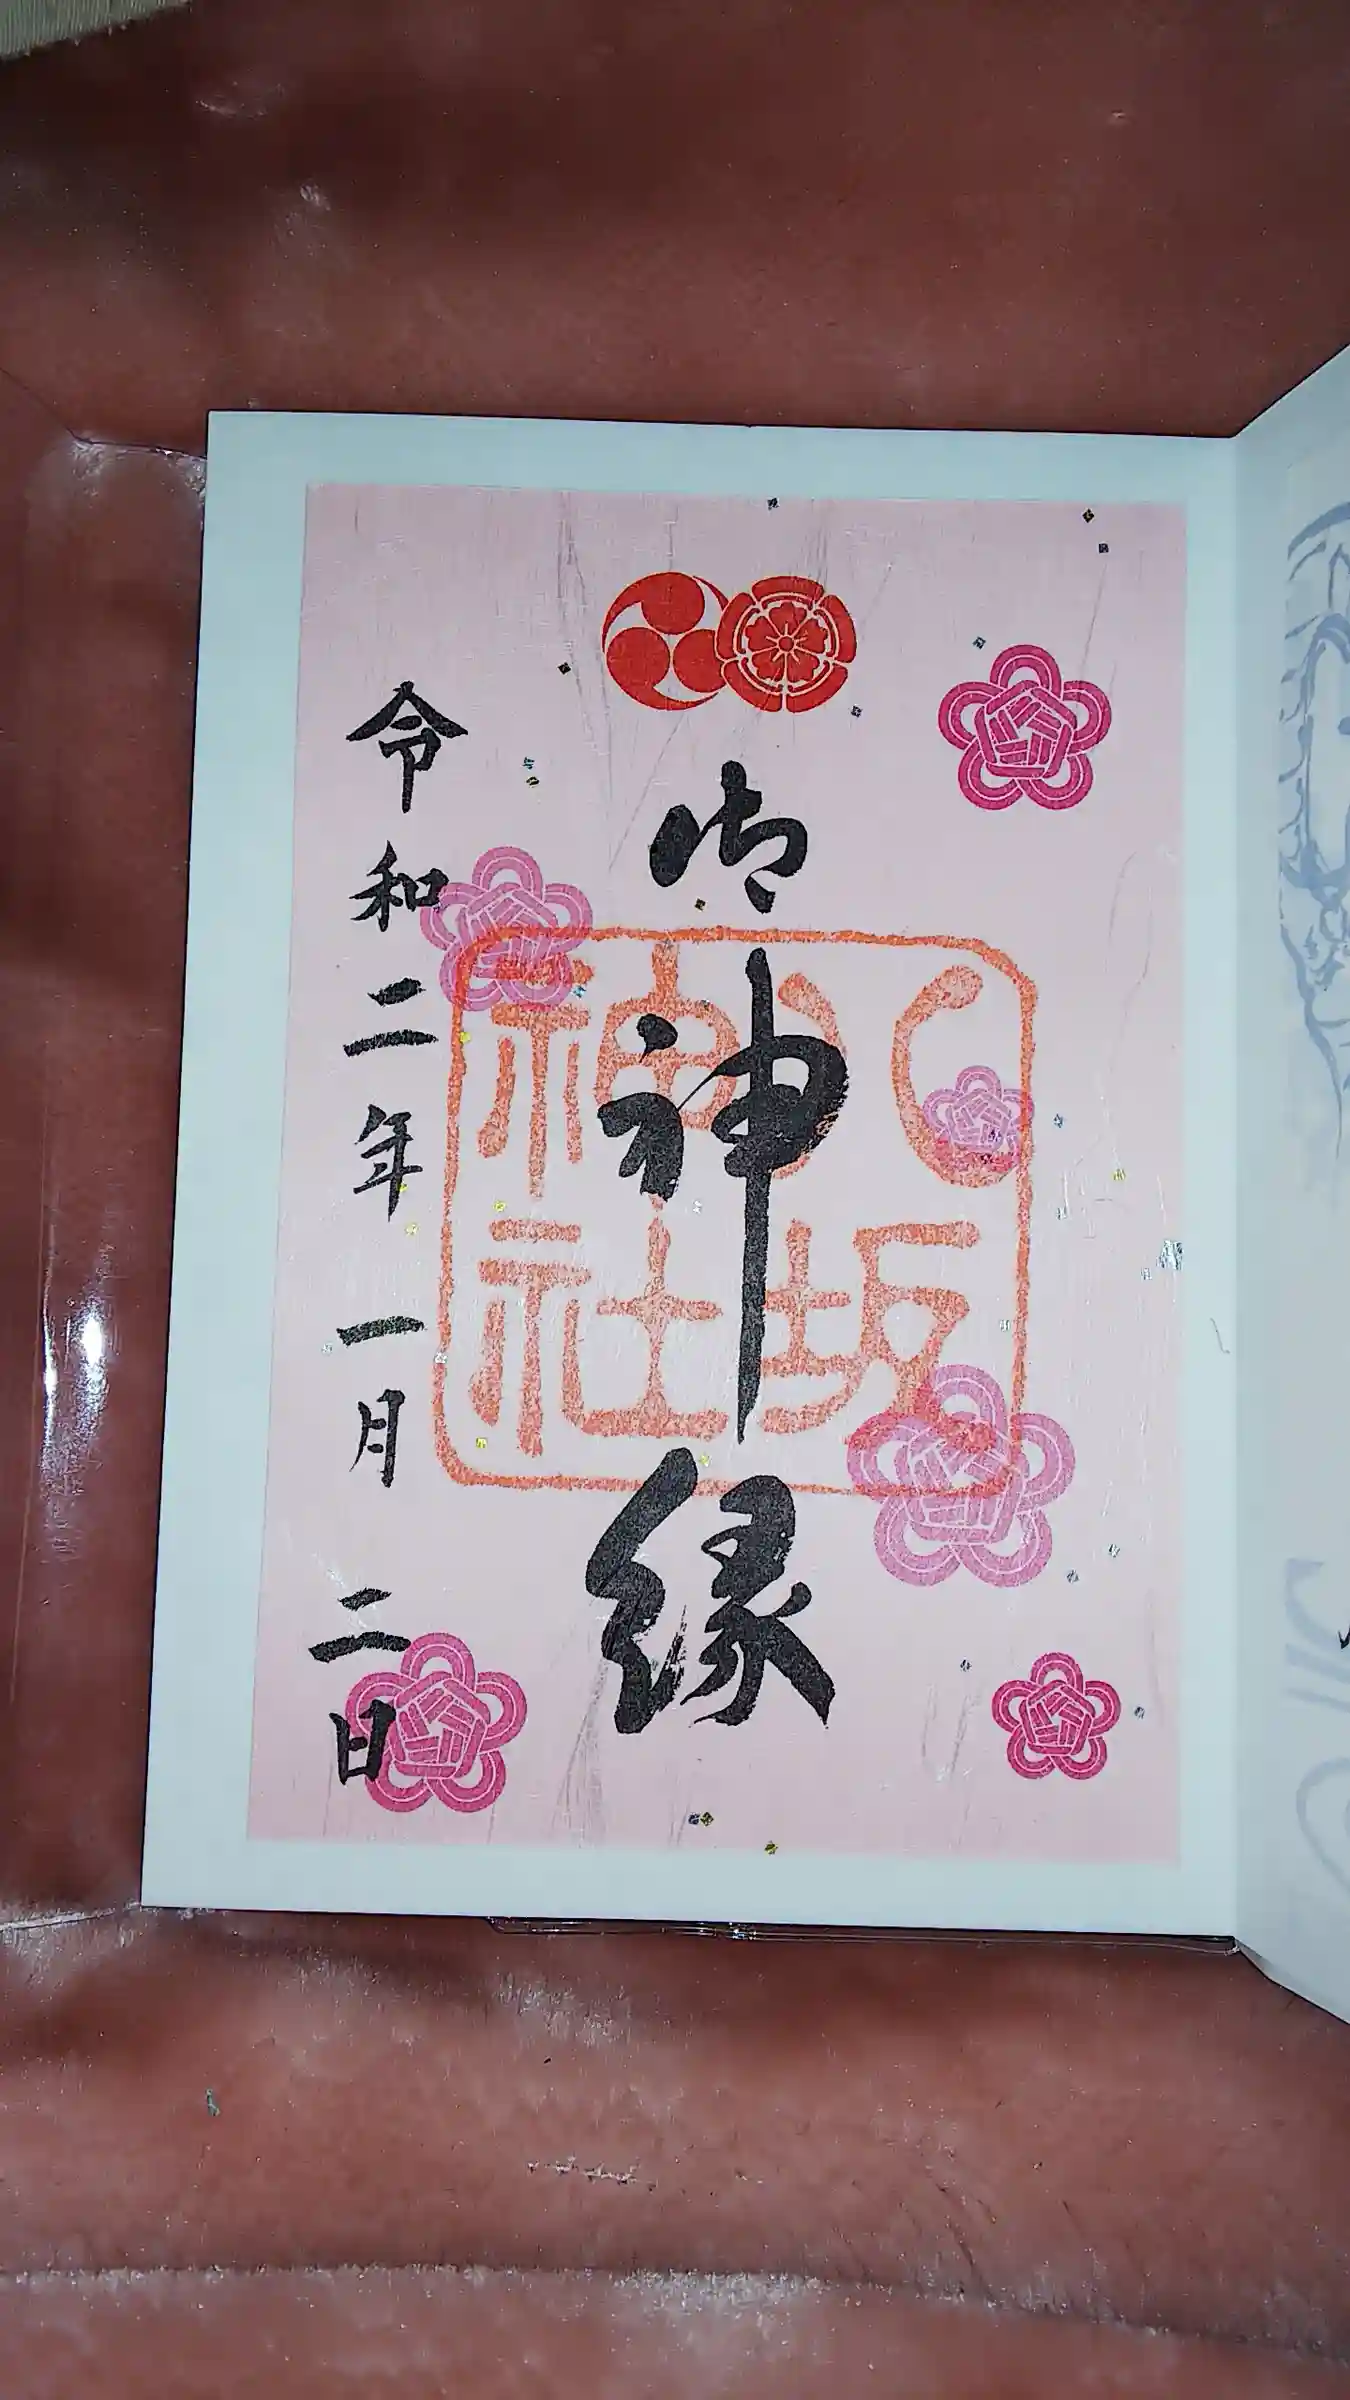 御神縁
八坂神社
令和二年一月二日